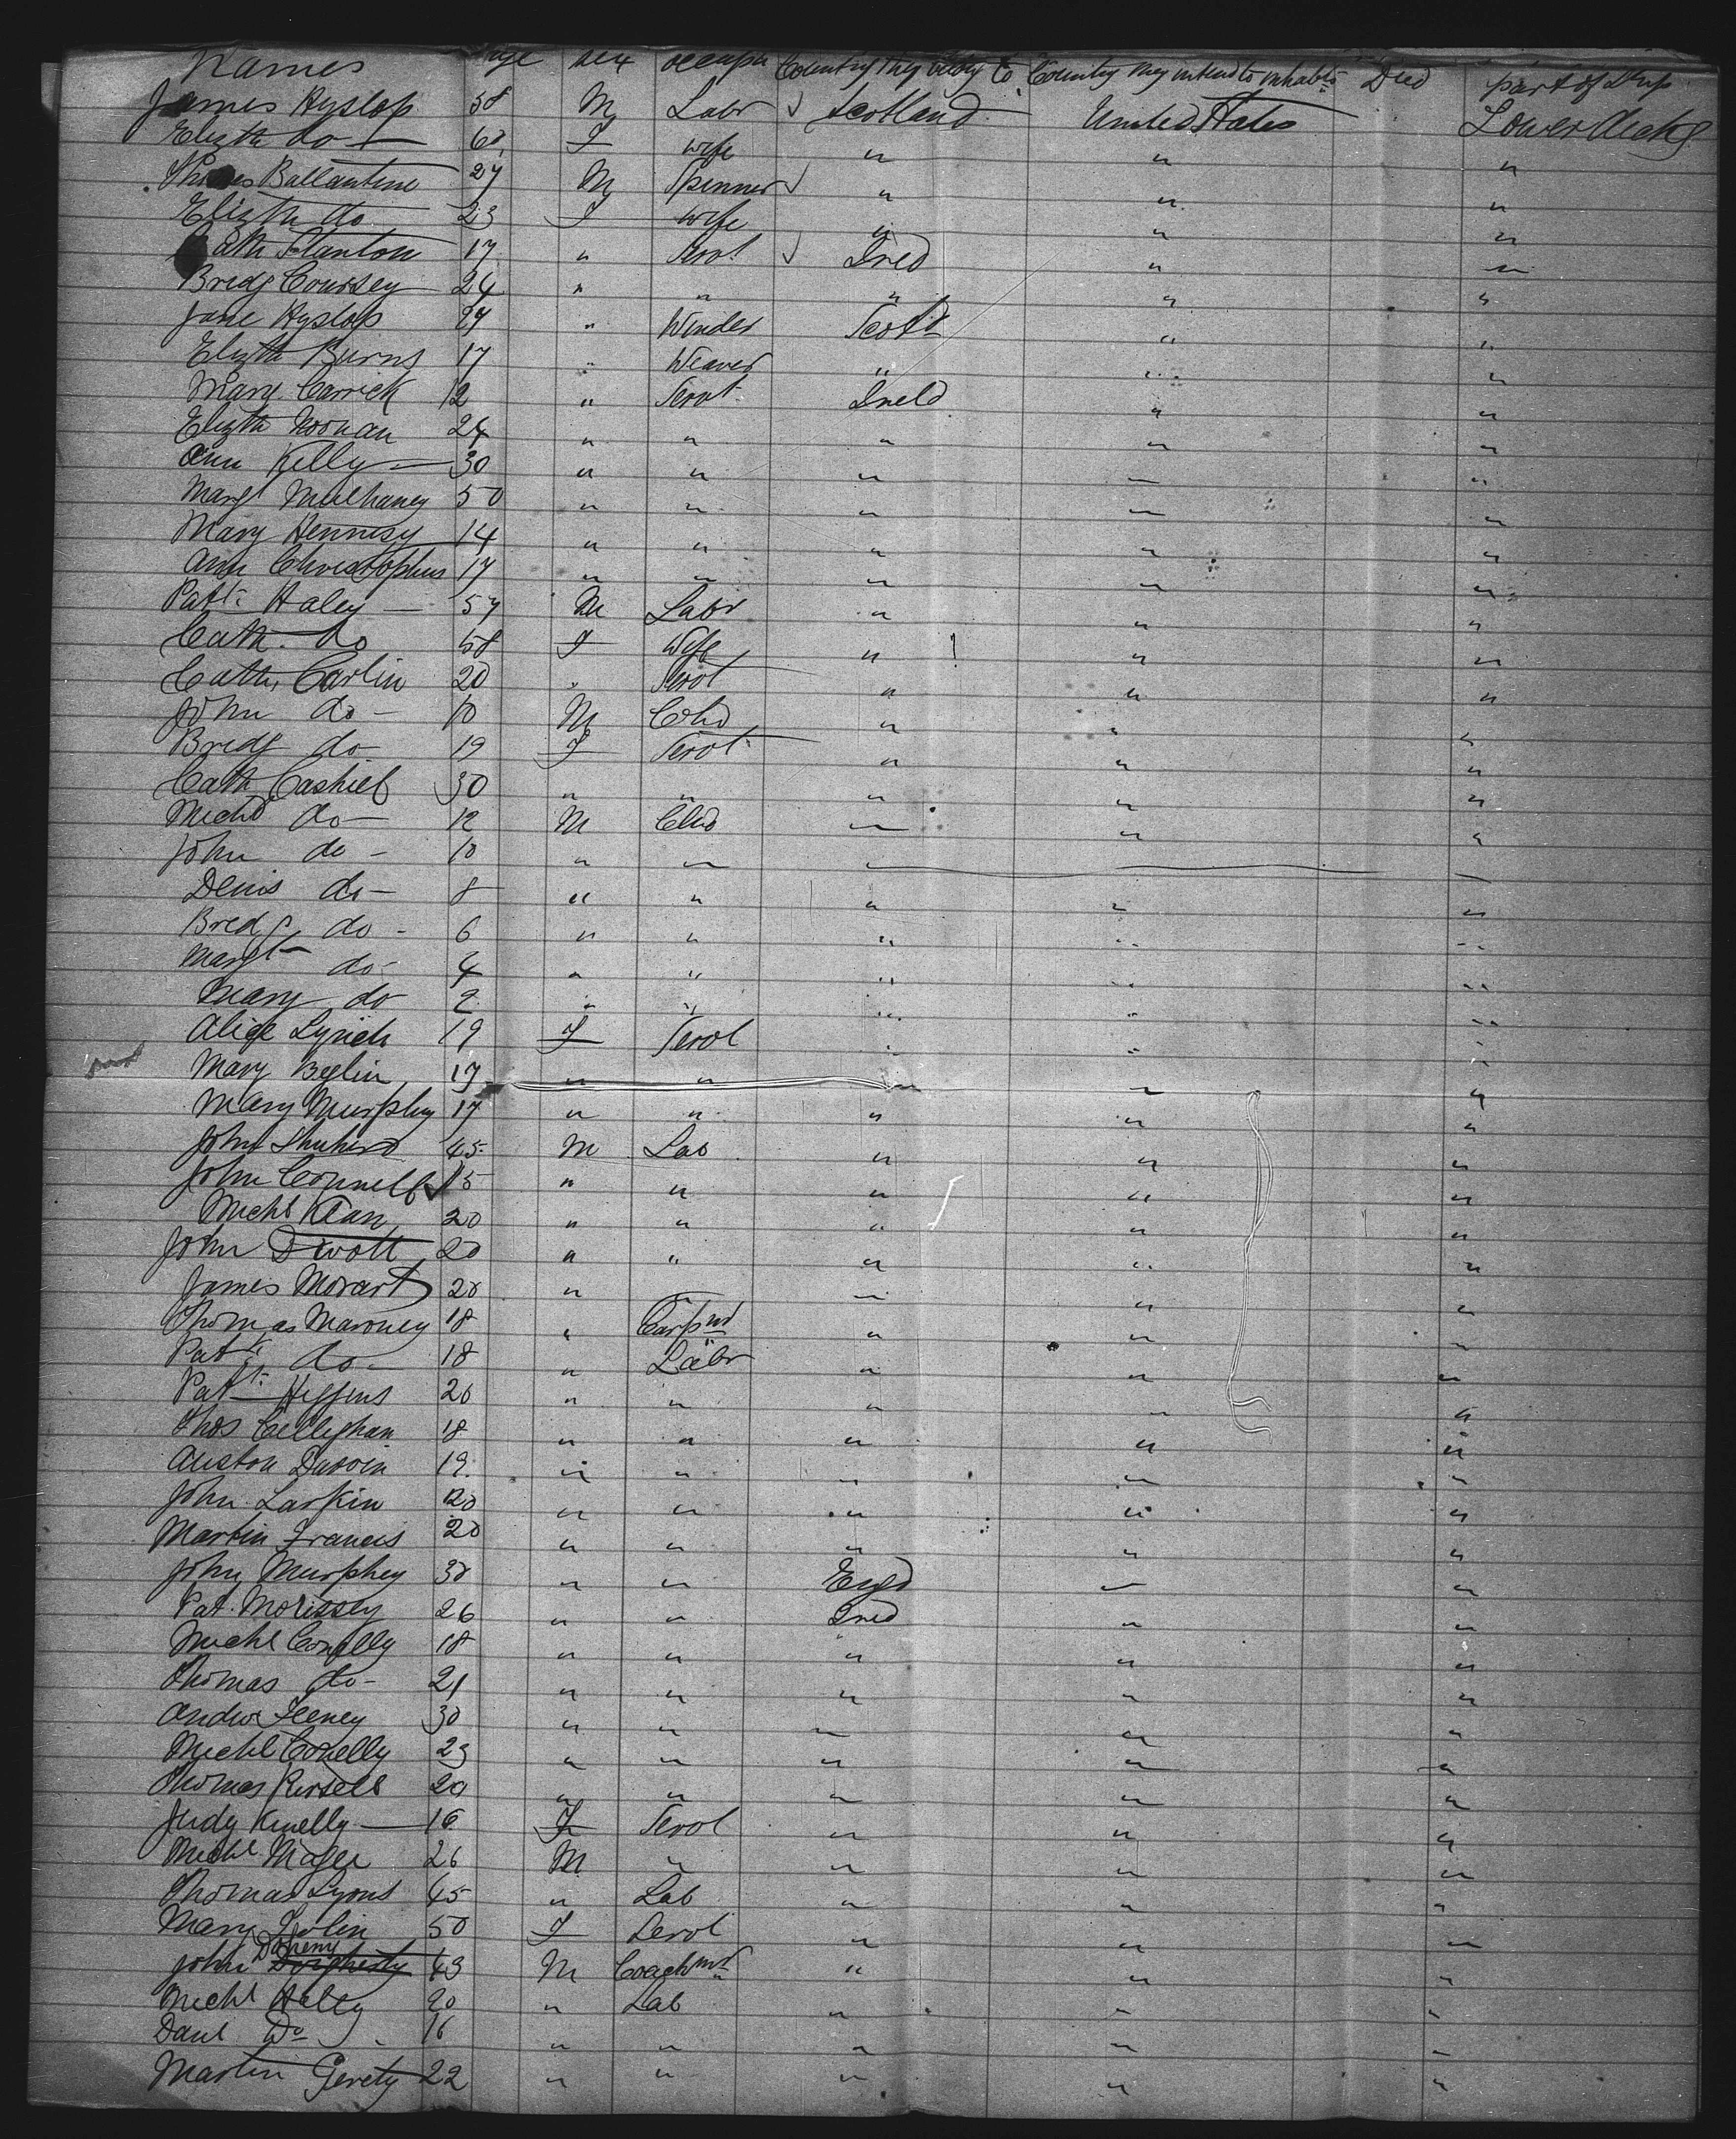 Names age sex occupn Country they belong to Country they intend to inhabit Died part of Ship
James Hyslop 58 M Labr Scotland United States Lower decks
Elizth do 60 F wife " " "
Ballantine 27 M Spinner " " "
Elizth do 23 F wife " " "
Cath Stanton 17 " Servt Ireld " "
Bridg Coursey 24 " " " " "
Jane Hyslop 27 " Winder Scotd " "
Elizth Burns 17 " Weaver " " "
Mary Carrick 12 " Servt Ireld " "
Elizth Noonan 24 " " " " "
Ann Kelly 30 " " " " "
Margt Mulhaney 50 " " " " "
Mary Hennesy 14 " " " " "
Ann Christophus 17 " " " " "
Patk Haley 57 M Labr " " "
Cath do 58 F Wife " " "
Cath Carlin 20 " Servt " " "
John do 10 M Chd " " "
Bredg do 19 F Servt " " "
Cath Cashiel 30 " " " " "
Michl do 12 M Chd " " "
John do 10 " " " " "
Denis do 8 " " " " "
Bredg do 6 " " " " "
Margt do 4 " " " " "
Mary do 2 " " " " "
Alice Lynch 19 F Servt " " "
Mary Beglin 17 " " " " "
Mary Murphy 17 " " " " "
John 45 M Lab " " "
John Connell 15 " " " " "
Michl Kean 20 " " " " "
John 20 " " " " "
James 20 " " " " "
Thomas Maroney 18 " Carpntr " " "
Patk do 18 " Labr " " "
Patk Higgins 26 " " " " "
Thos Calleghan 18 " " " " "
Auston 19 " " " " "
John Larkin 20 " " " " "
Martin Francis 20 " " " " "
John Murphey 30 " " Engd " "
Pat Morissey 26 " " Ired " "
Michl Conelly 18 " " " " "
Thomas do 21 " " " " "
Andw Feeney 30 " " " " "
Michl Conelly 23 " " " " "
Thomas Russell 20 " " " " "
Judy Kinelly 16 F Servt " " "
Michl Mager 26 M " " " "
Thomas Lyons 45 " Lab " " "
Mary 50 F Servt " " "
Doheny
John Dogherty 43 M Coachmn " " "
Michl Haley 20 " Lab " " "
Danl Do 16 " " " " "
Martin Gerety 22 " " " " "